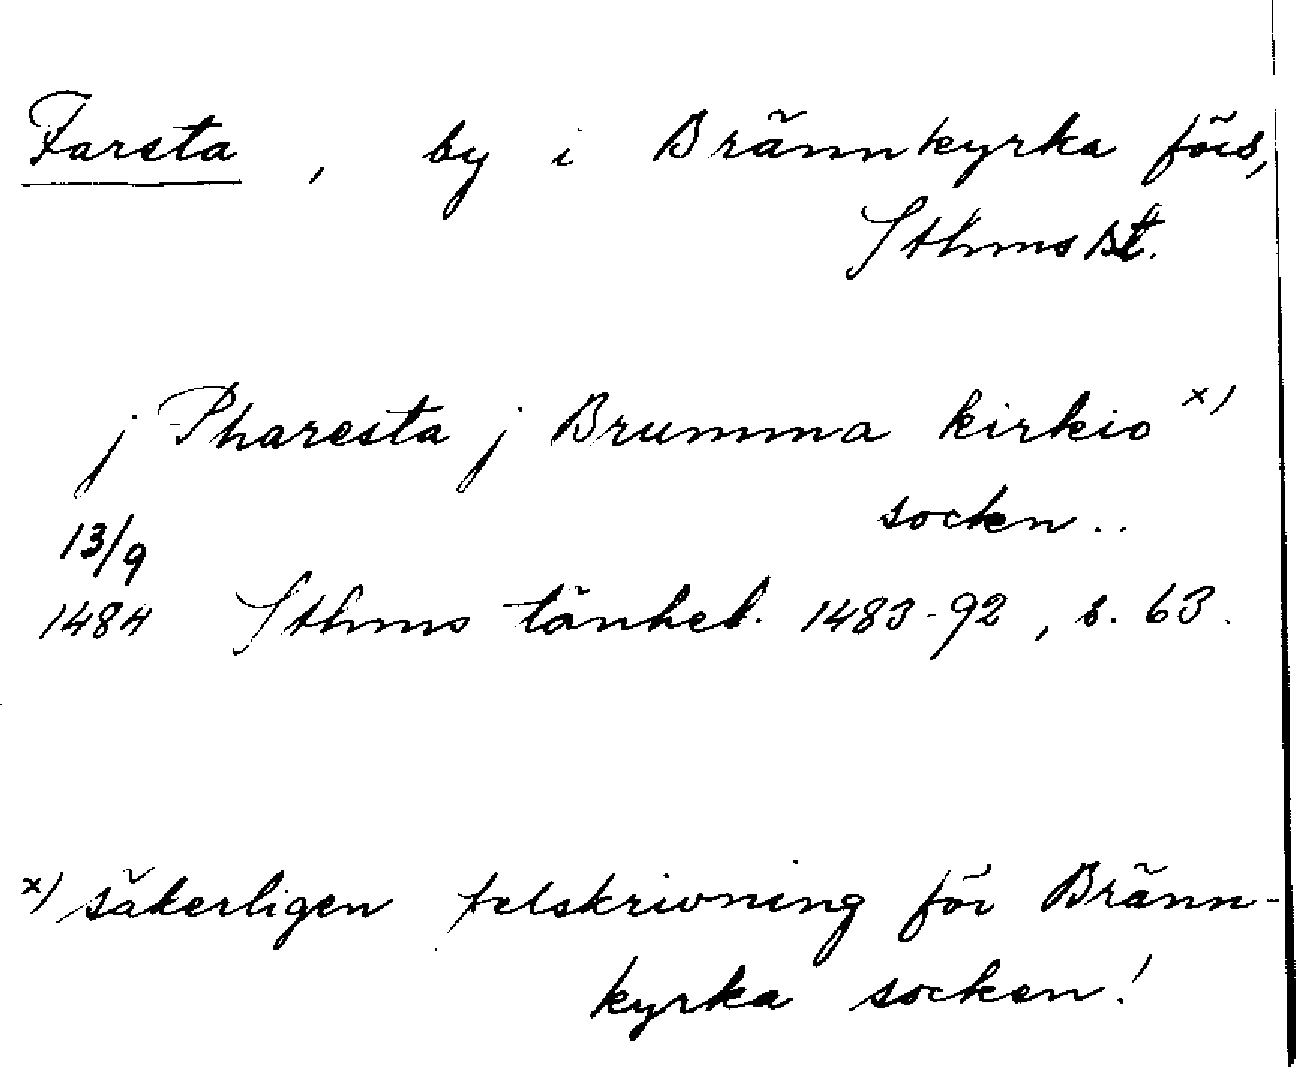 Farsta, by i Brännkyrka förs,
Sthms st.
j Pharesta j Brumma kirkio x)
socken..
13/9
1484 Sthms tänkeb. 1483-92, s. 63.
x) säkerligen felskrivning för Bränn-
kyrka socken!